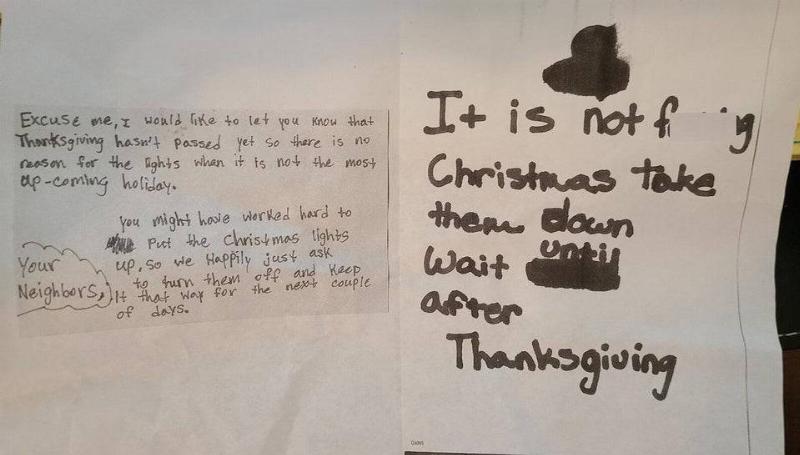 Excuse me, I would like to let you know that
Thanksgiving hasn't passed yet so there is no
reason for the lights when it is not the most
up-coming holiday.
you might have worked hard to
put the Christmas lights
up, so we Happily just ask
to turn them off and keep
It that way for the next couple
of days.
Your
Neighbors,
It is not f y
Christmas take
them down
Wait until
after
Thanksgiving